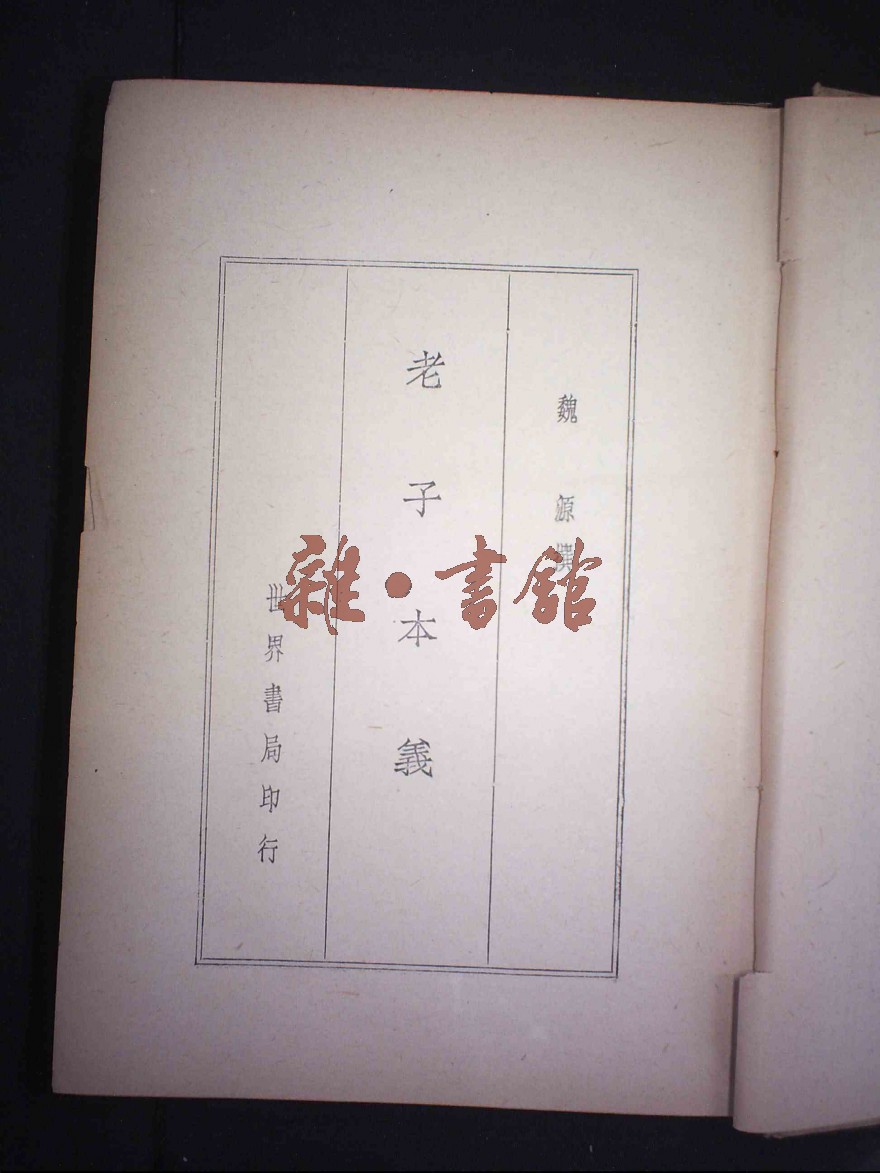 魏源撰
老子本義
世界書局印行
雜·書館